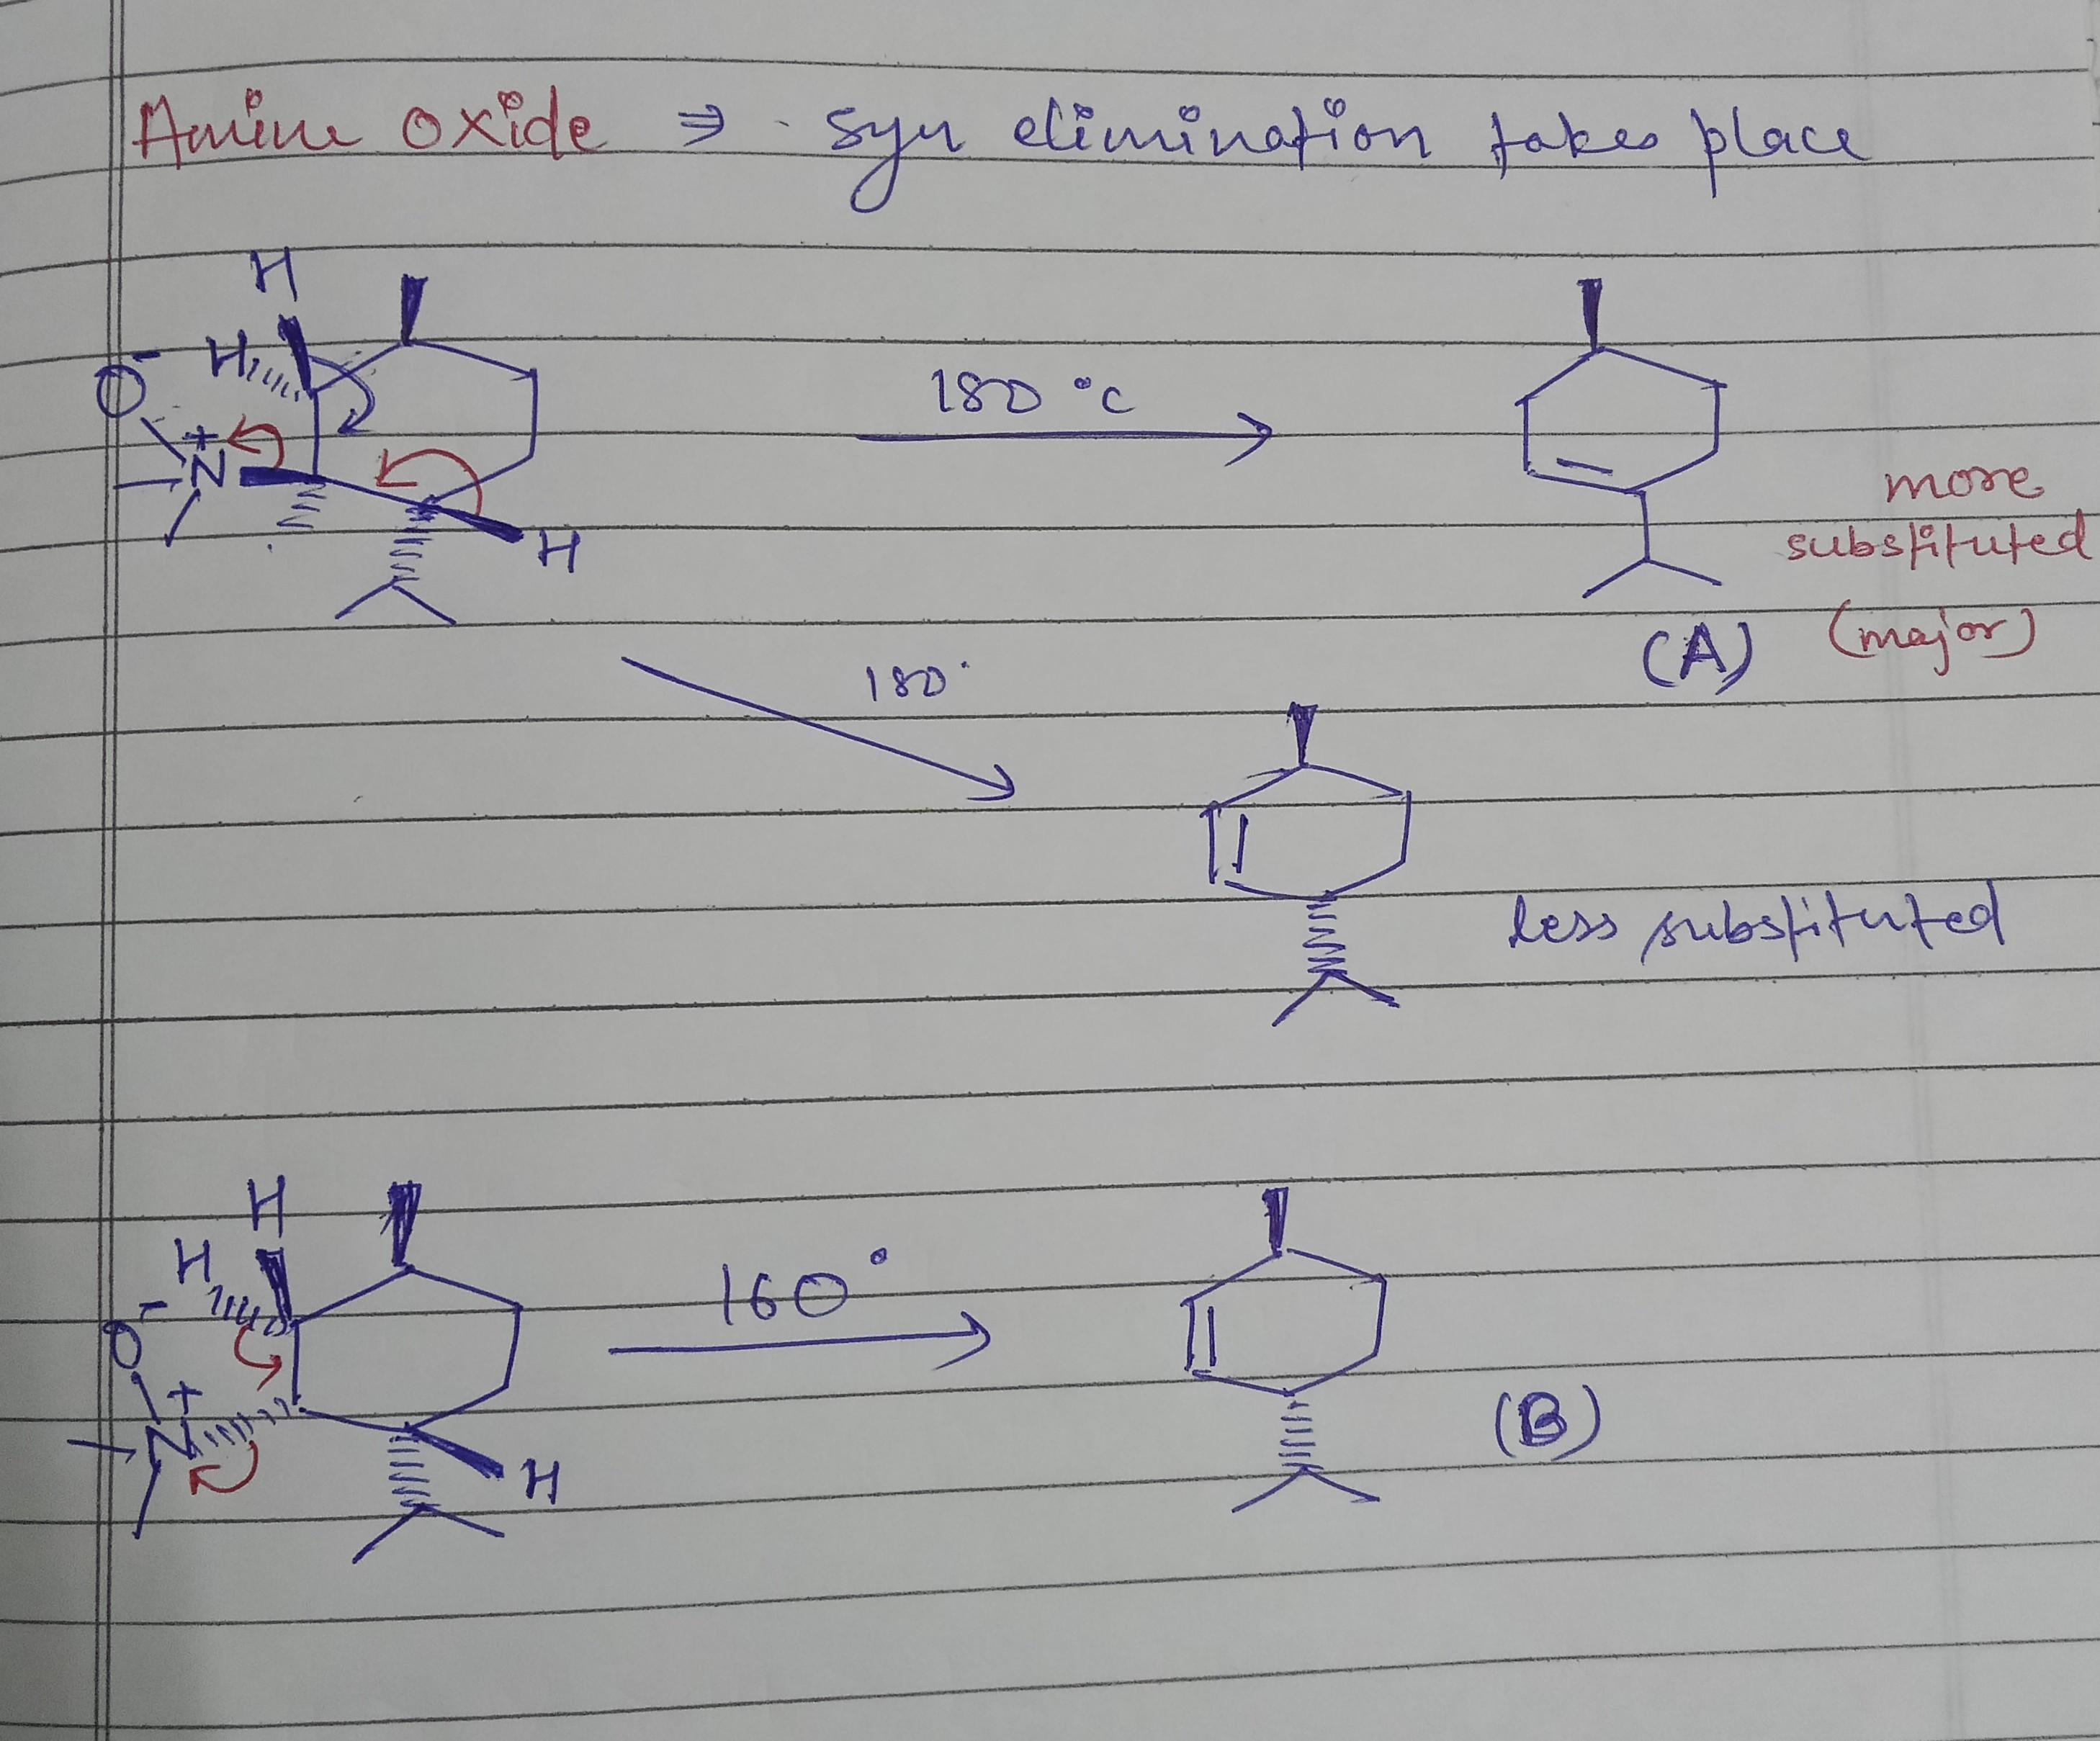 Amine oxide ⇒ syn elimination takes place
H
H
O -
+
N
H
180 °C
more
substituted
(major)
(A)
180°
less substituted
H
H
O -
+
N
H
160°
(B)